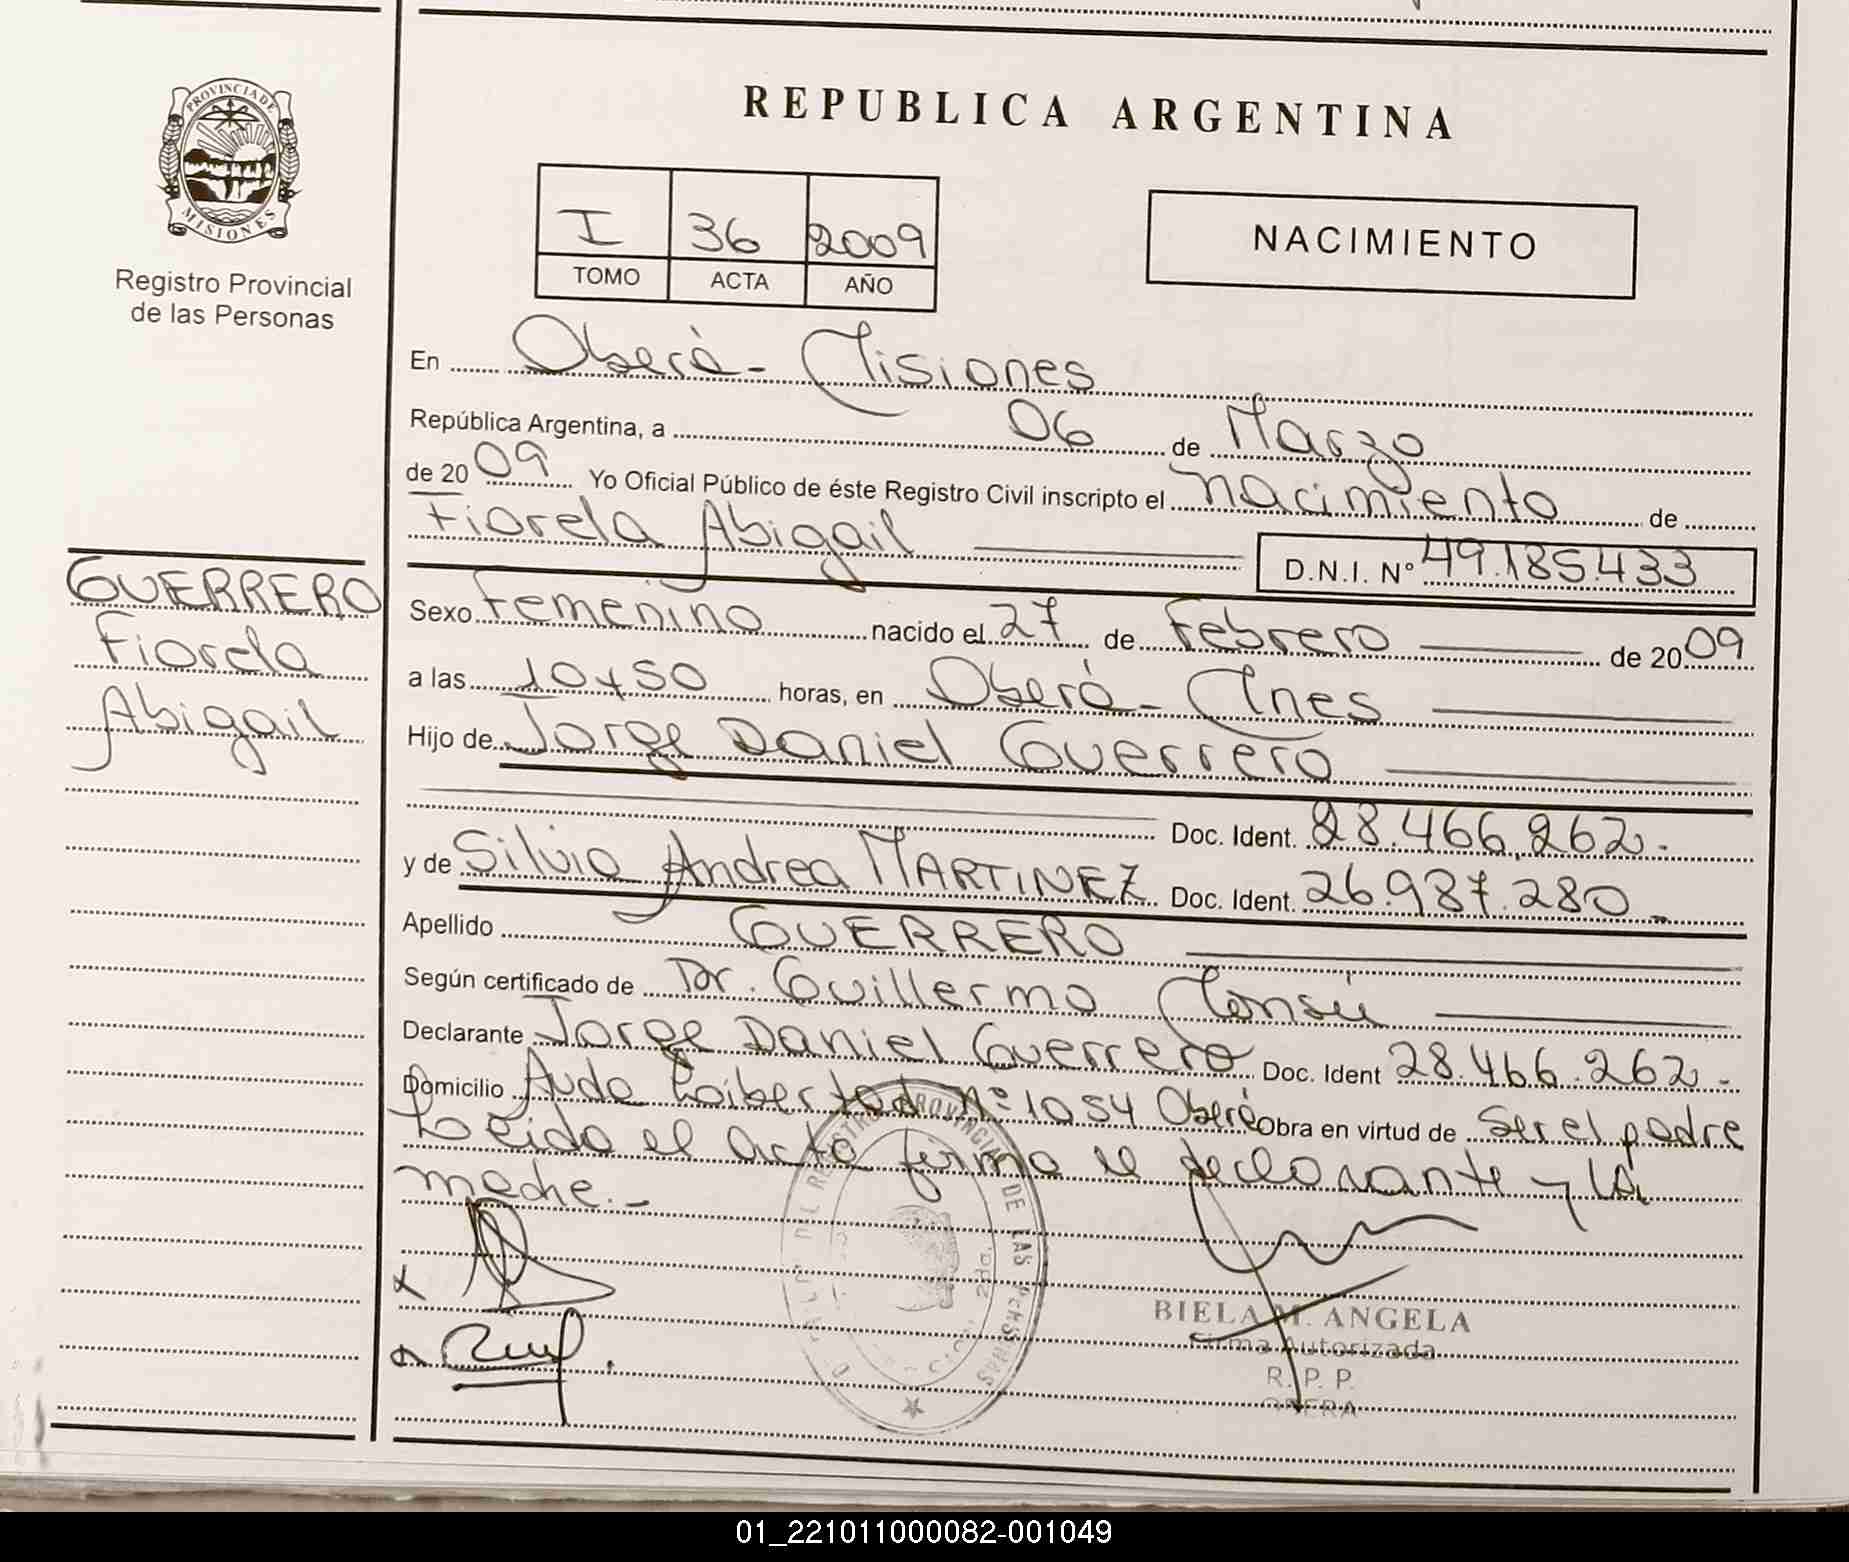 REPUBLICA ARGENTINA
PROVINCIA DE
MISIONES
Registro Provincial
de las Personas
I 36 2009
TOMO ACTA AÑO
NACIMIENTO
En Oberà - Misiones
República Argentina, a 06 de Marzo
de 20 09 Yo Oficial Público de éste Registro Civil inscripto el nacimiento de
Fiorela Abigail D.N.I. Nº 49.185.433
GUERRERO
Fiorela
Abigail
Sexo Femenino nacido el 27 de Febrero de 20 09
a las 10 y 50 horas, en Oberà - Mnes
Hijo de Jorge Daniel Guerrero
Doc. Ident. 28.466.262.-
y de Silvia Andrea MARTINEZ Doc. Ident. 26.987.280.-
Apellido GUERRERO
Según certificado de Dr. Guillermo
Declarante Jorge Daniel Guerrero Doc. Ident 28.466.262.-
Domicilio Avda Libertad Nº 1054 Oberà Obra en virtud de Ser el padre
Leida el acta firma el declarante y la
madre.-
REGISTRO PROVINCIAL DE LAS PERSONAS
BIELA M. ANGELA
Firma Autorizada
R. P. P.
OBERA
01_221011000082-001049